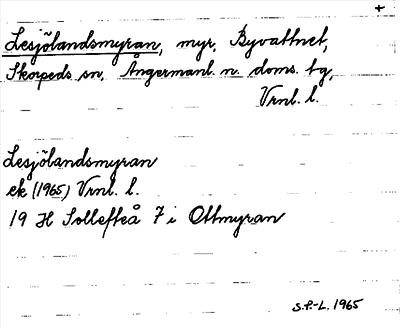 +
Lesjölandsmyran, myr, Byvattnet,
Skorpeds sn, Ångermanl. n. doms. tg,
Vrnl. l.
Lesjölandsmyran
ek (1965) Vrnl. l.
19 H Sollefteå 7 i Ottmyran
S.P.-L. 1965